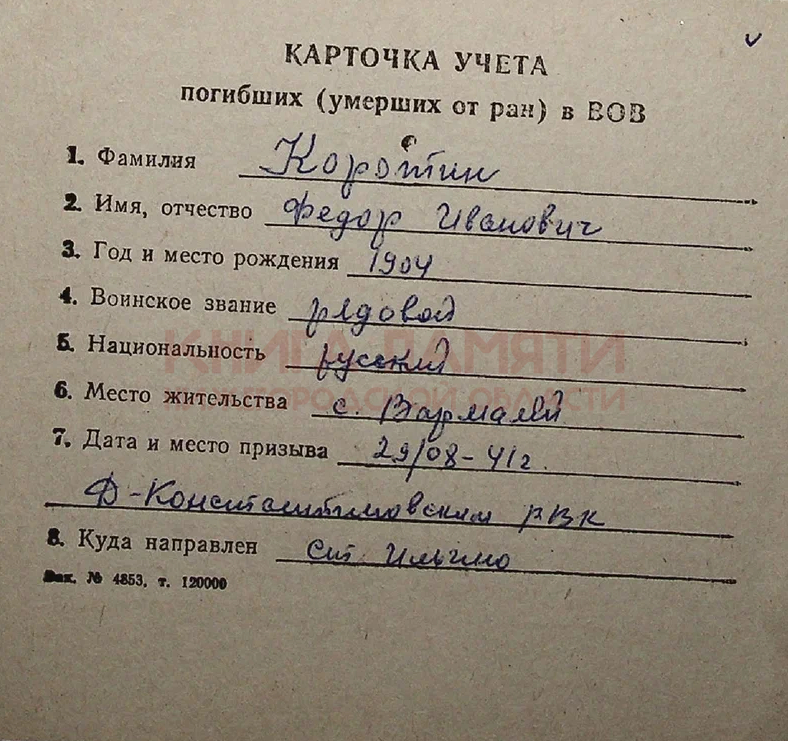 КАРТОЧКА УЧЕТА
погибших (умерших от ран) в ВОВ
1. Фамилия Коротин
2. Имя, отчество Федор Иванович
3. Год и место рождения 1904
4. Воинское звание рядовой
5. Национальность русский
6. Место жительства с. Вармалей
7. Дата и место призыва 29/08-41г.
Д-Константиновским РВК
8. Куда направлен ст. Ильино
Зак. № 4853, т. 120000
КНИГА ПАМЯТИ
НИЖЕГОРОДСКОЙ ОБЛАСТИ